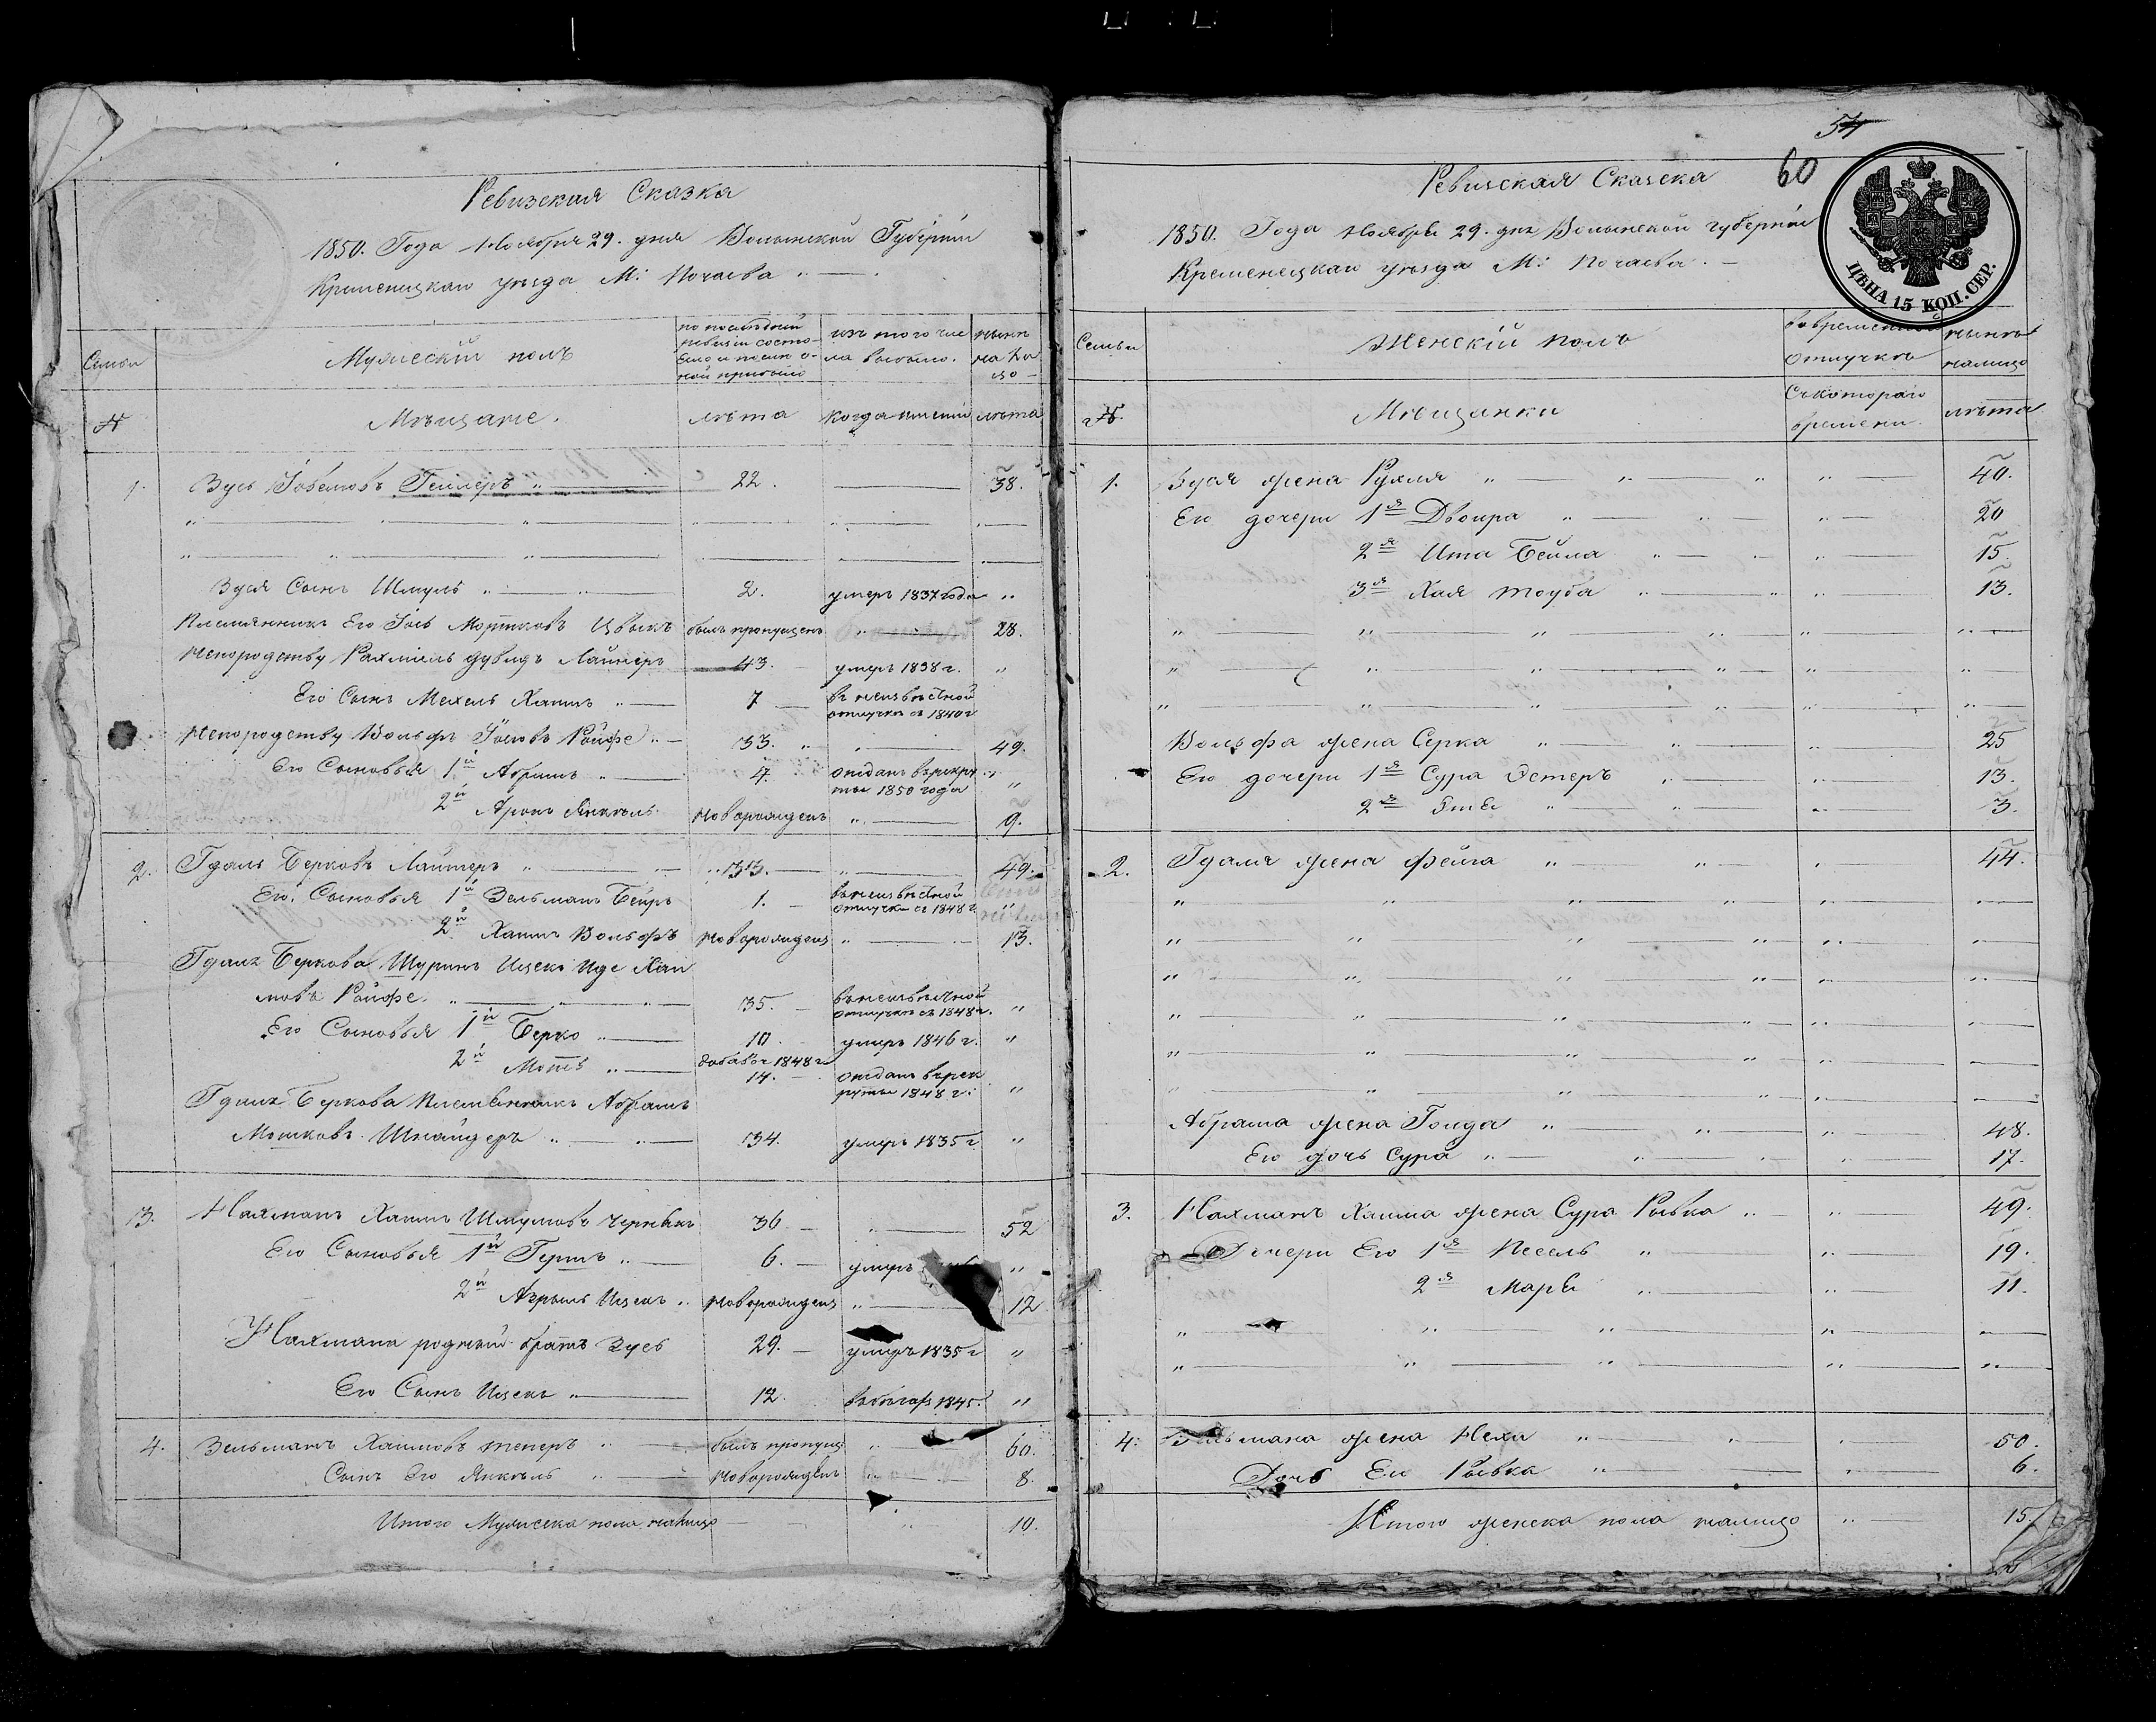 Ревизская Сказка
1850. Года Ноября 29. дня Волынской Губерніи
Кременецкаго уѣзда М: Почаева
Семьи
Мужескій полъ
по послѣдней ревизіи состояло и послѣ оной прибыло
изъ того числа выбыло.
нынѣ на лицо
№
Мѣщане.
лѣта
когда именно
лѣта
1. Зусь Гейлеръ 22. 38.
Зуся Сынъ Шмуль 2. умеръ 1837 года
Племянникъ Его Іось Мортковъ Цвыкъ былъ пропущенъ 28.
Непородству Рахміель Дувидъ Лайнеръ 43. умеръ 1838 г.
Его Сынъ Мехель Хаимъ 7 въ неизвѣстной отлучкѣ съ 1840 г
Непородству Вольфъ Ройфе 33. 49.
Его Сыновья 1й Абрамъ 4. отданъ въ рекруты 1850 года
2й Аронъ Янкель новорожденъ 9.
2. Гдаль Берковъ Лайнеръ 33. 49.
Его Сыновья 1й Зельманъ Бейръ 1. въ неизвѣстной отлучкѣ съ 1848 г.
2й Хаимъ Вольфъ новорожденъ 13.
Гдаля Беркова Шуринъ Ицекъ Иде Хаи
мовъ Ройфе. 35. въ неизвѣстной отлучкѣ съ 1848 г.
Его Сыновья 1й Берко 10. умеръ 1846 г.
2й Мотѣ добавоч 1848 г 14. отданъ въ рекруты 1848 г.
Гдаля Беркова племенникъ Абрамъ
Мошковъ Шнайдеръ 34. умеръ 1835 г
3. Нахманъ Хаимъ Шмулевъ 36 52
Его Сыновья 1й Гершъ 6. умеръ
2й Ицекъ новорожденъ 12
Нахмана родный братъ Зусь 29. умеръ 1835 г
Его Сынъ Ицекъ 12. въ бѣгах 1845.
4. Зельманъ Хаимовъ былъ пропущ 60.
Сынъ Его Янкель новорожденъ 8.
Итого Мужеска пола налицо 10.
54
60
Ревизская Сказка
1850. Года Ноября 29. дня Волынской губерніи
Кременецкаго уѣзда М: Почаева
ЦѢНА 15 КОП. СЕР.
Семьи
Женскій полъ
во временной отлучкѣ
нынѣ налицо
№.
Мѣщанки
Съ котораго времени
лѣта
1. Зуся жена Рухля 40.
Его дочери 1я Двойра 20
2я Ита Бейла 15.
3я Хая Тоуба 13.
Вольфа жена Серка 25
Его дочери 1я Сура Эстеръ 13.
2я 3.
2. Гдаля жена Фейга 44.
Абрама жена Голда 48.
Его дочь Сура 17.
3. Нахманъ Хаима жена Сура Рывка 49.
Дочери Его 1я Песель 19.
2я 11.
4. Зельмана жена Нехи 50.
Дочь Его Рывка 6.
Итого женска пола налицо 15.